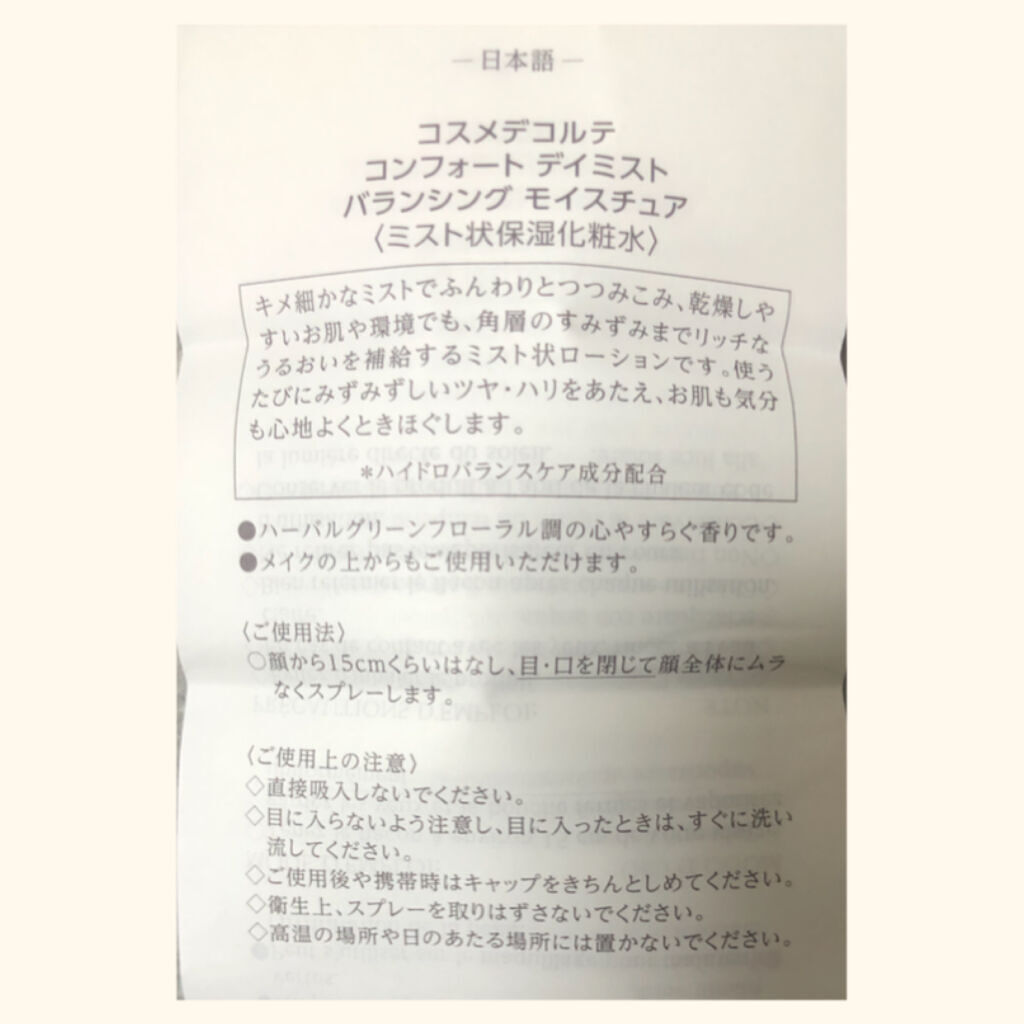 ―日本語―
コスメデコルテ
コンフォート デイミスト
バランシング モイスチュア
〈ミスト状保湿化粧水〉
キメ細かなミストでふんわりとつつみこみ、乾燥しや
すいお肌や環境でも、角層のすみずみまでリッチな
うるおいを補給するミスト状ローションです。使う
たびにみずみずしいツヤ・ハリをあたえ、お肌も気分
も心地よくときほぐします。
*ハイドロバランスケア成分配合
●ハーバルグリーンフローラル調の心やすらぐ香りです。
●メイクの上からもご使用いただけます。
〈ご使用法〉
○顔から15cmくらいはなし、目・口を閉じて顔全体にムラ
なくスプレーします。
〈ご使用上の注意〉
◇直接吸入しないでください。
◇目に入らないよう注意し、目に入ったときは、すぐに洗い
流してください。
◇ご使用後や携帯時はキャップをきちんとしめてください。
◇衛生上、スプレーを取りはずさないでください。
◇高温の場所や日のあたる場所には置かないでください。